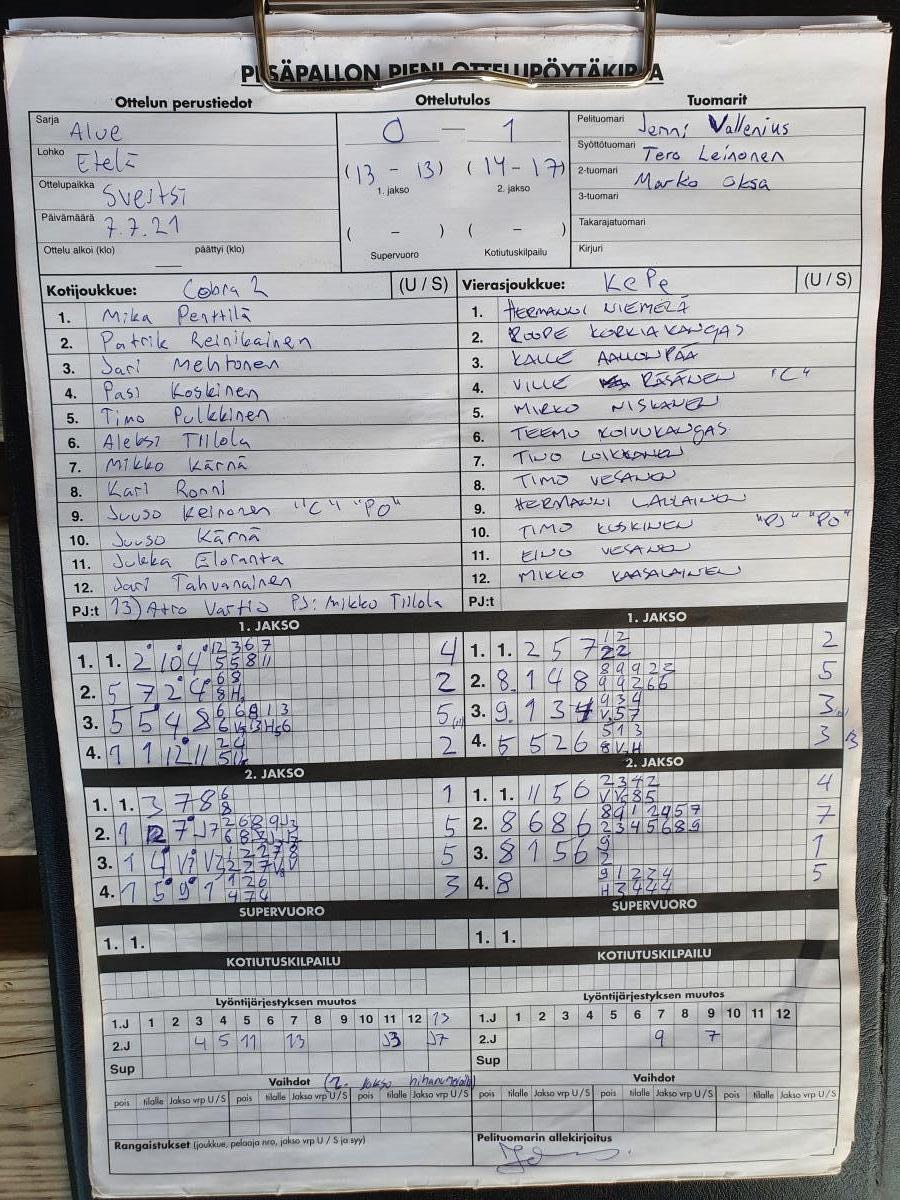 PESÄPALLON PIENI OTTELUPÖYTÄKIRJA
Ottelun perustiedot Ottelutulos Tuomarit
Sarja Alue
Lohko Etelä
Ottelupaikka Sveitsi
Päivämäärä 7.7.21
Ottelu alkoi (klo) päättyi (klo)
0 — 1
(13 - 13) (14 - 17)
1. jakso 2. jakso
( - ) ( - )
Supervuoro Kotiutuskilpailu
Pelituomari Jenni Vallenius
Syöttötuomari Tero Leinonen
2-tuomari Marko Oksa
3-tuomari
Takarajatuomari
Kirjuri
Kotijoukkue: Cobra 2 (U / S)
1. Mika Penttilä
2. Patrik Reinikainen
3. Jari Mehtonen
4. Pasi Koskinen
5. Timo Pulkkinen
6. Aleksi Tiilola
7. Mikko Kärnä
8. Kari Ronni
9. Juuso Keinonen "C" "PO"
10. Juuso Kärnä
11. Jukka Eloranta
12. Jari Tahvanainen
PJ:t 13) Atro Vartio PJ: Mikko Tiilola
Vierasjoukkue: KePe (U / S)
1. HERMANNI NIEMELÄ
2. ROOPE KORKIAKANGAS
3. KALLE AALLONPÄÄ
4. VILLE RÄSÄNEN "C"
5. MIRKO NISKANEN
6. TEEMU KOIVUKANGAS
7. TINO LOIKKANEN
8. TIMO VESANEN
9. HERMANNI LAULAINEN
10. TIMO KOSKINEN "PJ" "PO"
11. EINO VESANEN
12. MIKKO KAASALAINEN
PJ:t
1. JAKSO
1. 1. 2 10 4 4
2. 5 7 2 4 2
3. 5 5 4 8 5
4. 1 1 12 11 2
2. JAKSO
1. 1. 3 7 8 1
2. 5
3. 5
4. 1 5 9 1 3
SUPERVUORO
1. 1.
KOTIUTUSKILPAILU
1. JAKSO
1. 1. 2 5 7 2
2. 8. 1 4 8 5
3. 9. 1 3 3
4. 5 5 2 6 3
2. JAKSO
1. 1. 11 5 6 4
2. 8 6 8 6 7
3. 8 1 5 6 1
4. 8 5
SUPERVUORO
1. 1.
KOTIUTUSKILPAILU
Lyöntijärjestyksen muutos
1.J 1 2 3 4 5 6 7 8 9 10 11 12 13
2.J 4 5 11 13 J3 J7
Sup
Lyöntijärjestyksen muutos
1.J 1 2 3 4 5 6 7 8 9 10 11 12
2.J 9 7
Sup
Vaihdot (2. jakso
pois tilalle Jakso vrp U / S pois tilalle Jakso vrp U / S pois tilalle Jakso vrp U / S
Vaihdot
pois tilalle Jakso vrp U / S pois tilalle Jakso vrp U / S pois tilalle Jakso vrp U / S
Rangaistukset (joukkue, pelaaja nro, jakso vrp U / S ja syy)
Pelituomarin allekirjoitus